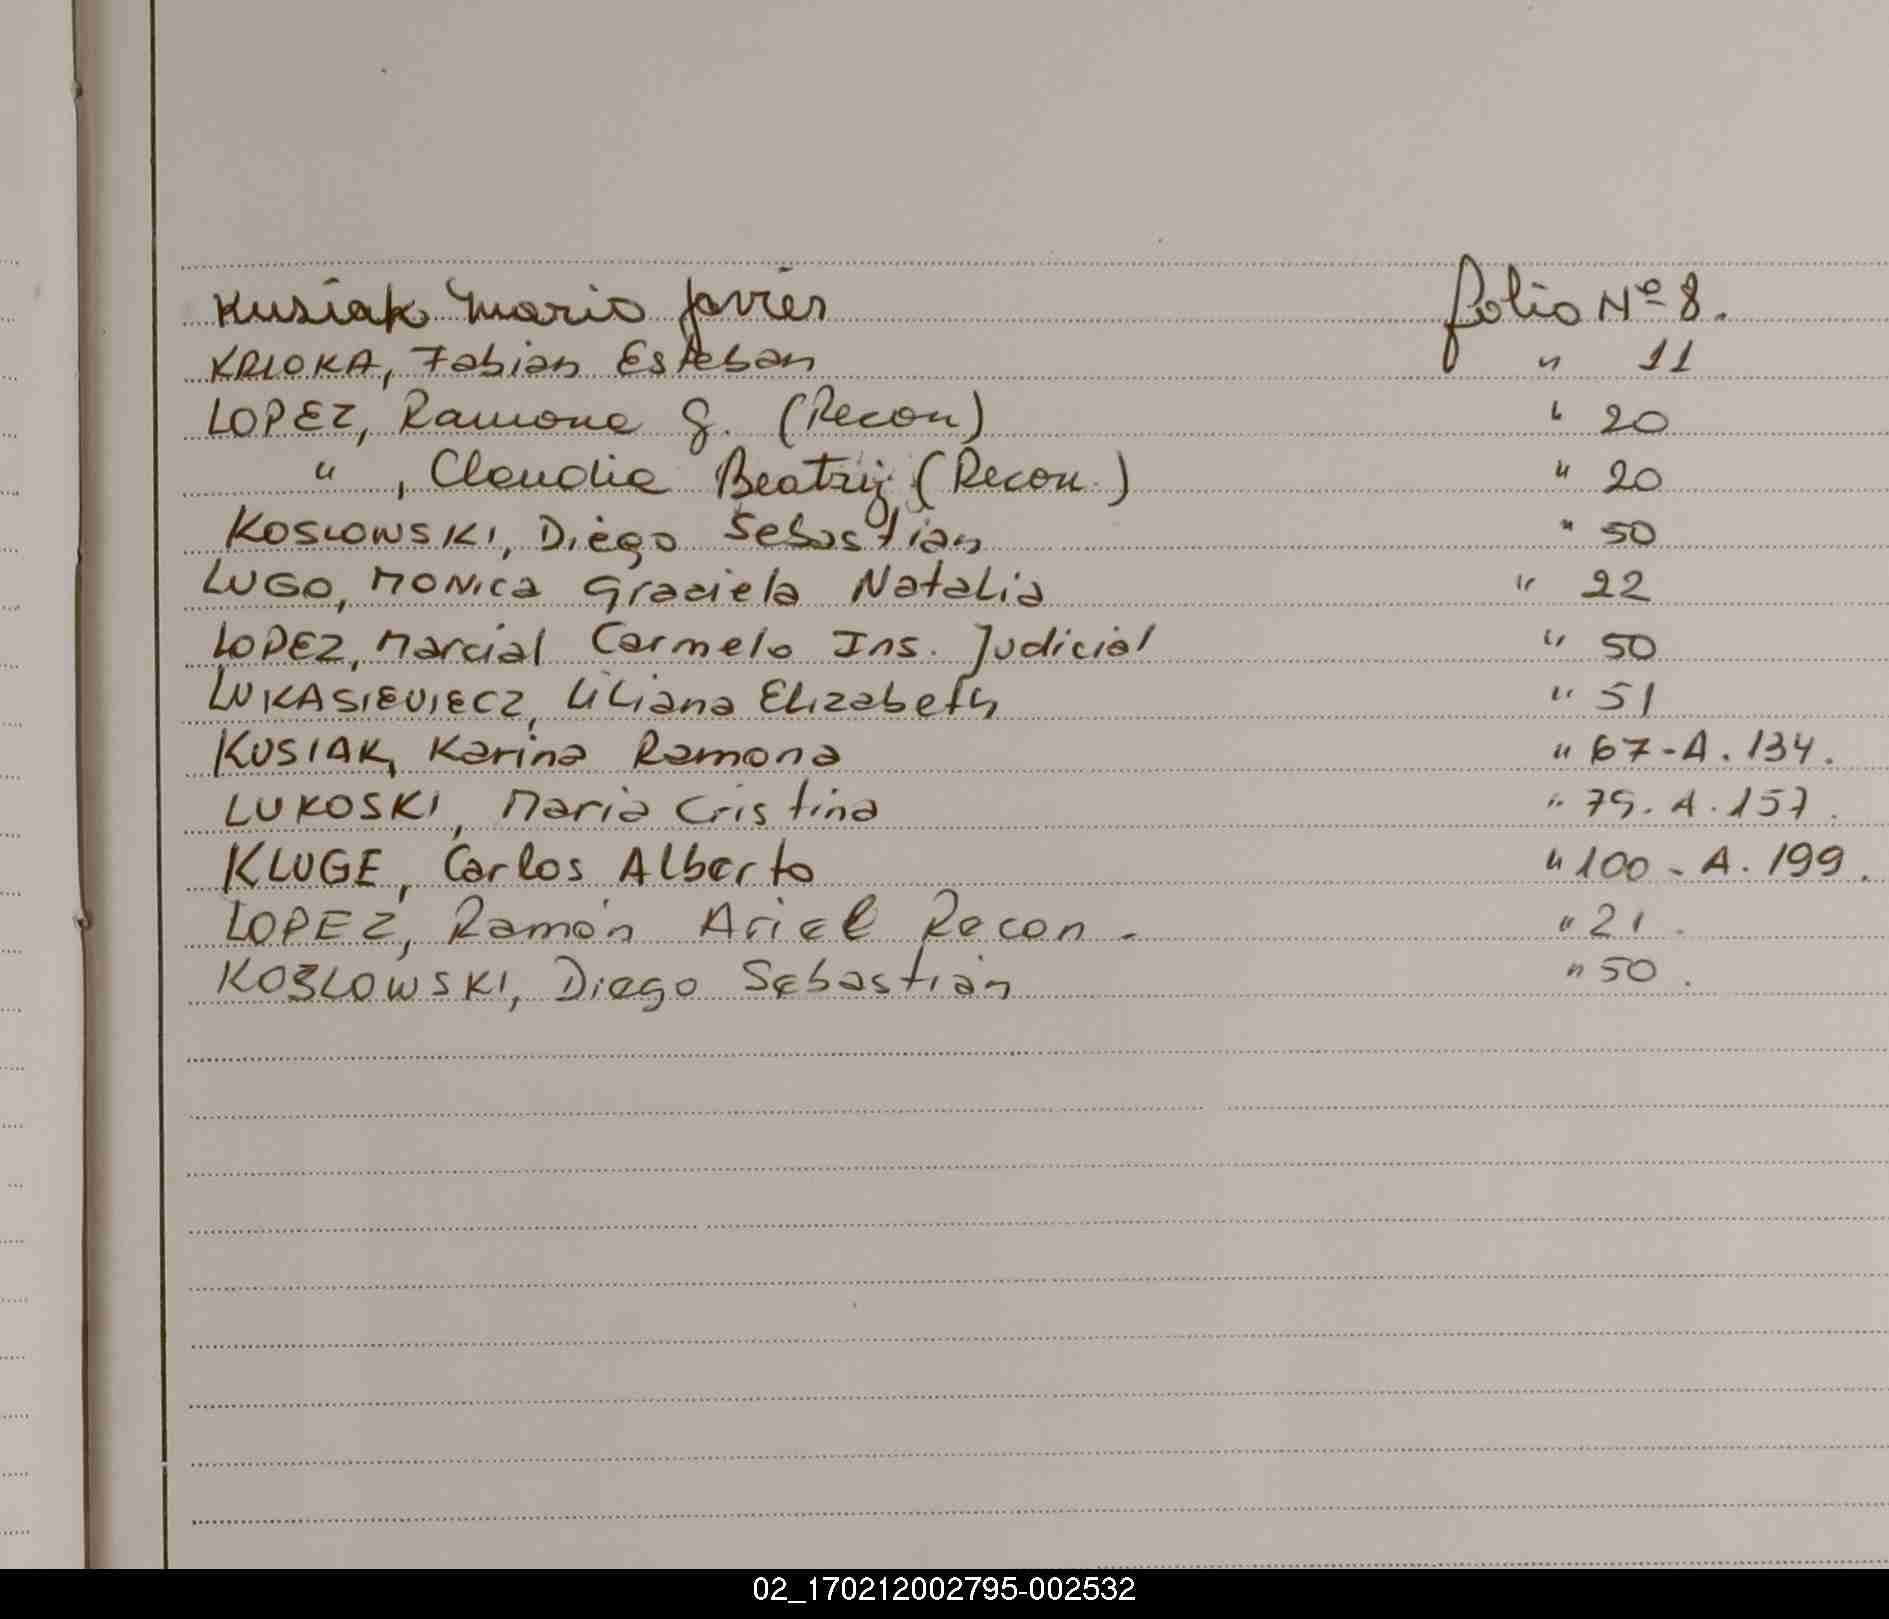 Kusiak Mario Javier folio Nº 8.
KRLOKA, Fabian Esteban " 11
LOPEZ, Ramona G. (Recon) " 20
" , Claudia Beatriz (Recon.) " 20
KOSLOWSKI, Diego Sebastian " 50
LUGO, MONICA Graciela Natalia " 22
LOPEZ, Marcial Carmelo Ins. Judicial " 50
LUKASIEVIECZ, Liliana Elizabeth " 51
KUSIAK, Karina Ramona " 67-A. 134.
LUKOSKI, Maria Cristina " 79. A. 157.
KLUGE, Carlos Alberto " 100 - A. 199.
LOPEZ, Ramón Ariel Recon - " 21.
KOZLOWSKI, Diego Sebastián " 50.
02_170212002795-002532